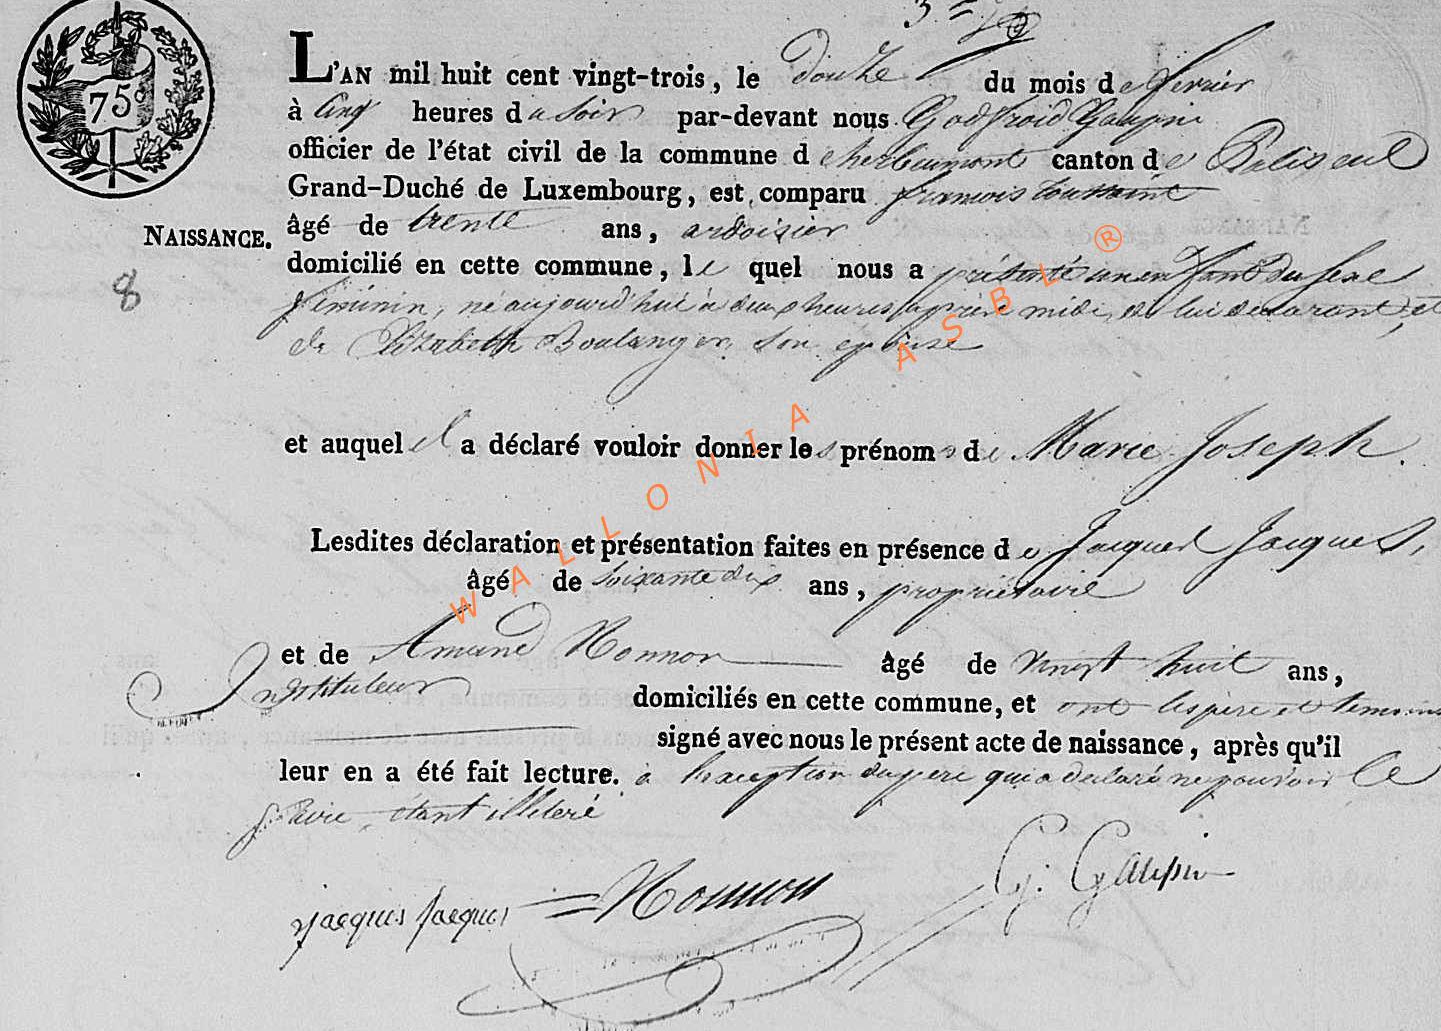 75
L'AN mil huit cent vingt-trois, le douze du mois de fevrier
à cinq heures du soir par-devant nous Godfroid Gaupin
officier de l'état civil de la commune d'herbeumont canton de Paliseul
Grand-Duché de Luxembourg, est comparu francois toussaint
NAISSANCE.
8
âgé de trente ans, ardoisier
domicilié en cette commune, le quel nous a présenté un enfant du sexe
féminin, né aujourd'hui à deux heures après midi, de lui déclarant, et
de Elizabeth Boulanger son epouse
et auquel il a déclaré vouloir donner les prénoms de Marie Joseph.
Lesdites déclaration et présentation faites en présence de Jacques Jacques,
âgé de soixante dix ans, propriétaire
et de Amand Nonnon âgé de vingt huit ans,
Instituteur domiciliés en cette commune, et ont les père et temoins
signé avec nous le présent acte de naissance, après qu'il
leur en a été fait lecture. à l'exception du père qui a declaré ne pouvoir le
faire, etant illiteré
jacques jacques Nonnon G: Gaupin
WALLONIA ASBL ®